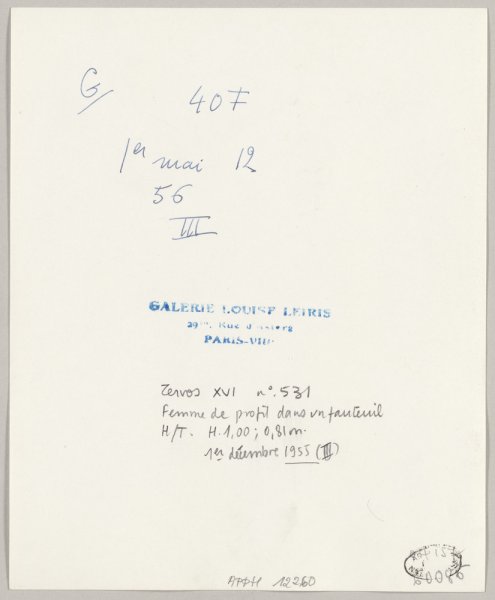 G/
407
1er mai 12
56
III
GALERIE LOUISE LEIRIS
29bis, Rue d'Astorg
PARIS-VIIIe
Zervos XVI n°. 531
Femme de profil dans un fauteuil
H/T. H. 1,00 ; 0,81 m.
1er décembre 1955 (III)
APPH 12260